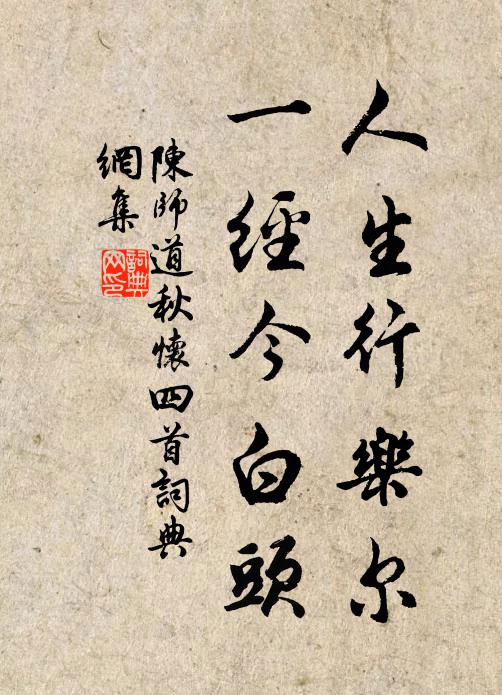 人生行樂尔
一經今白頭
陳師道秋懷四首詞典
網集
詞典網印